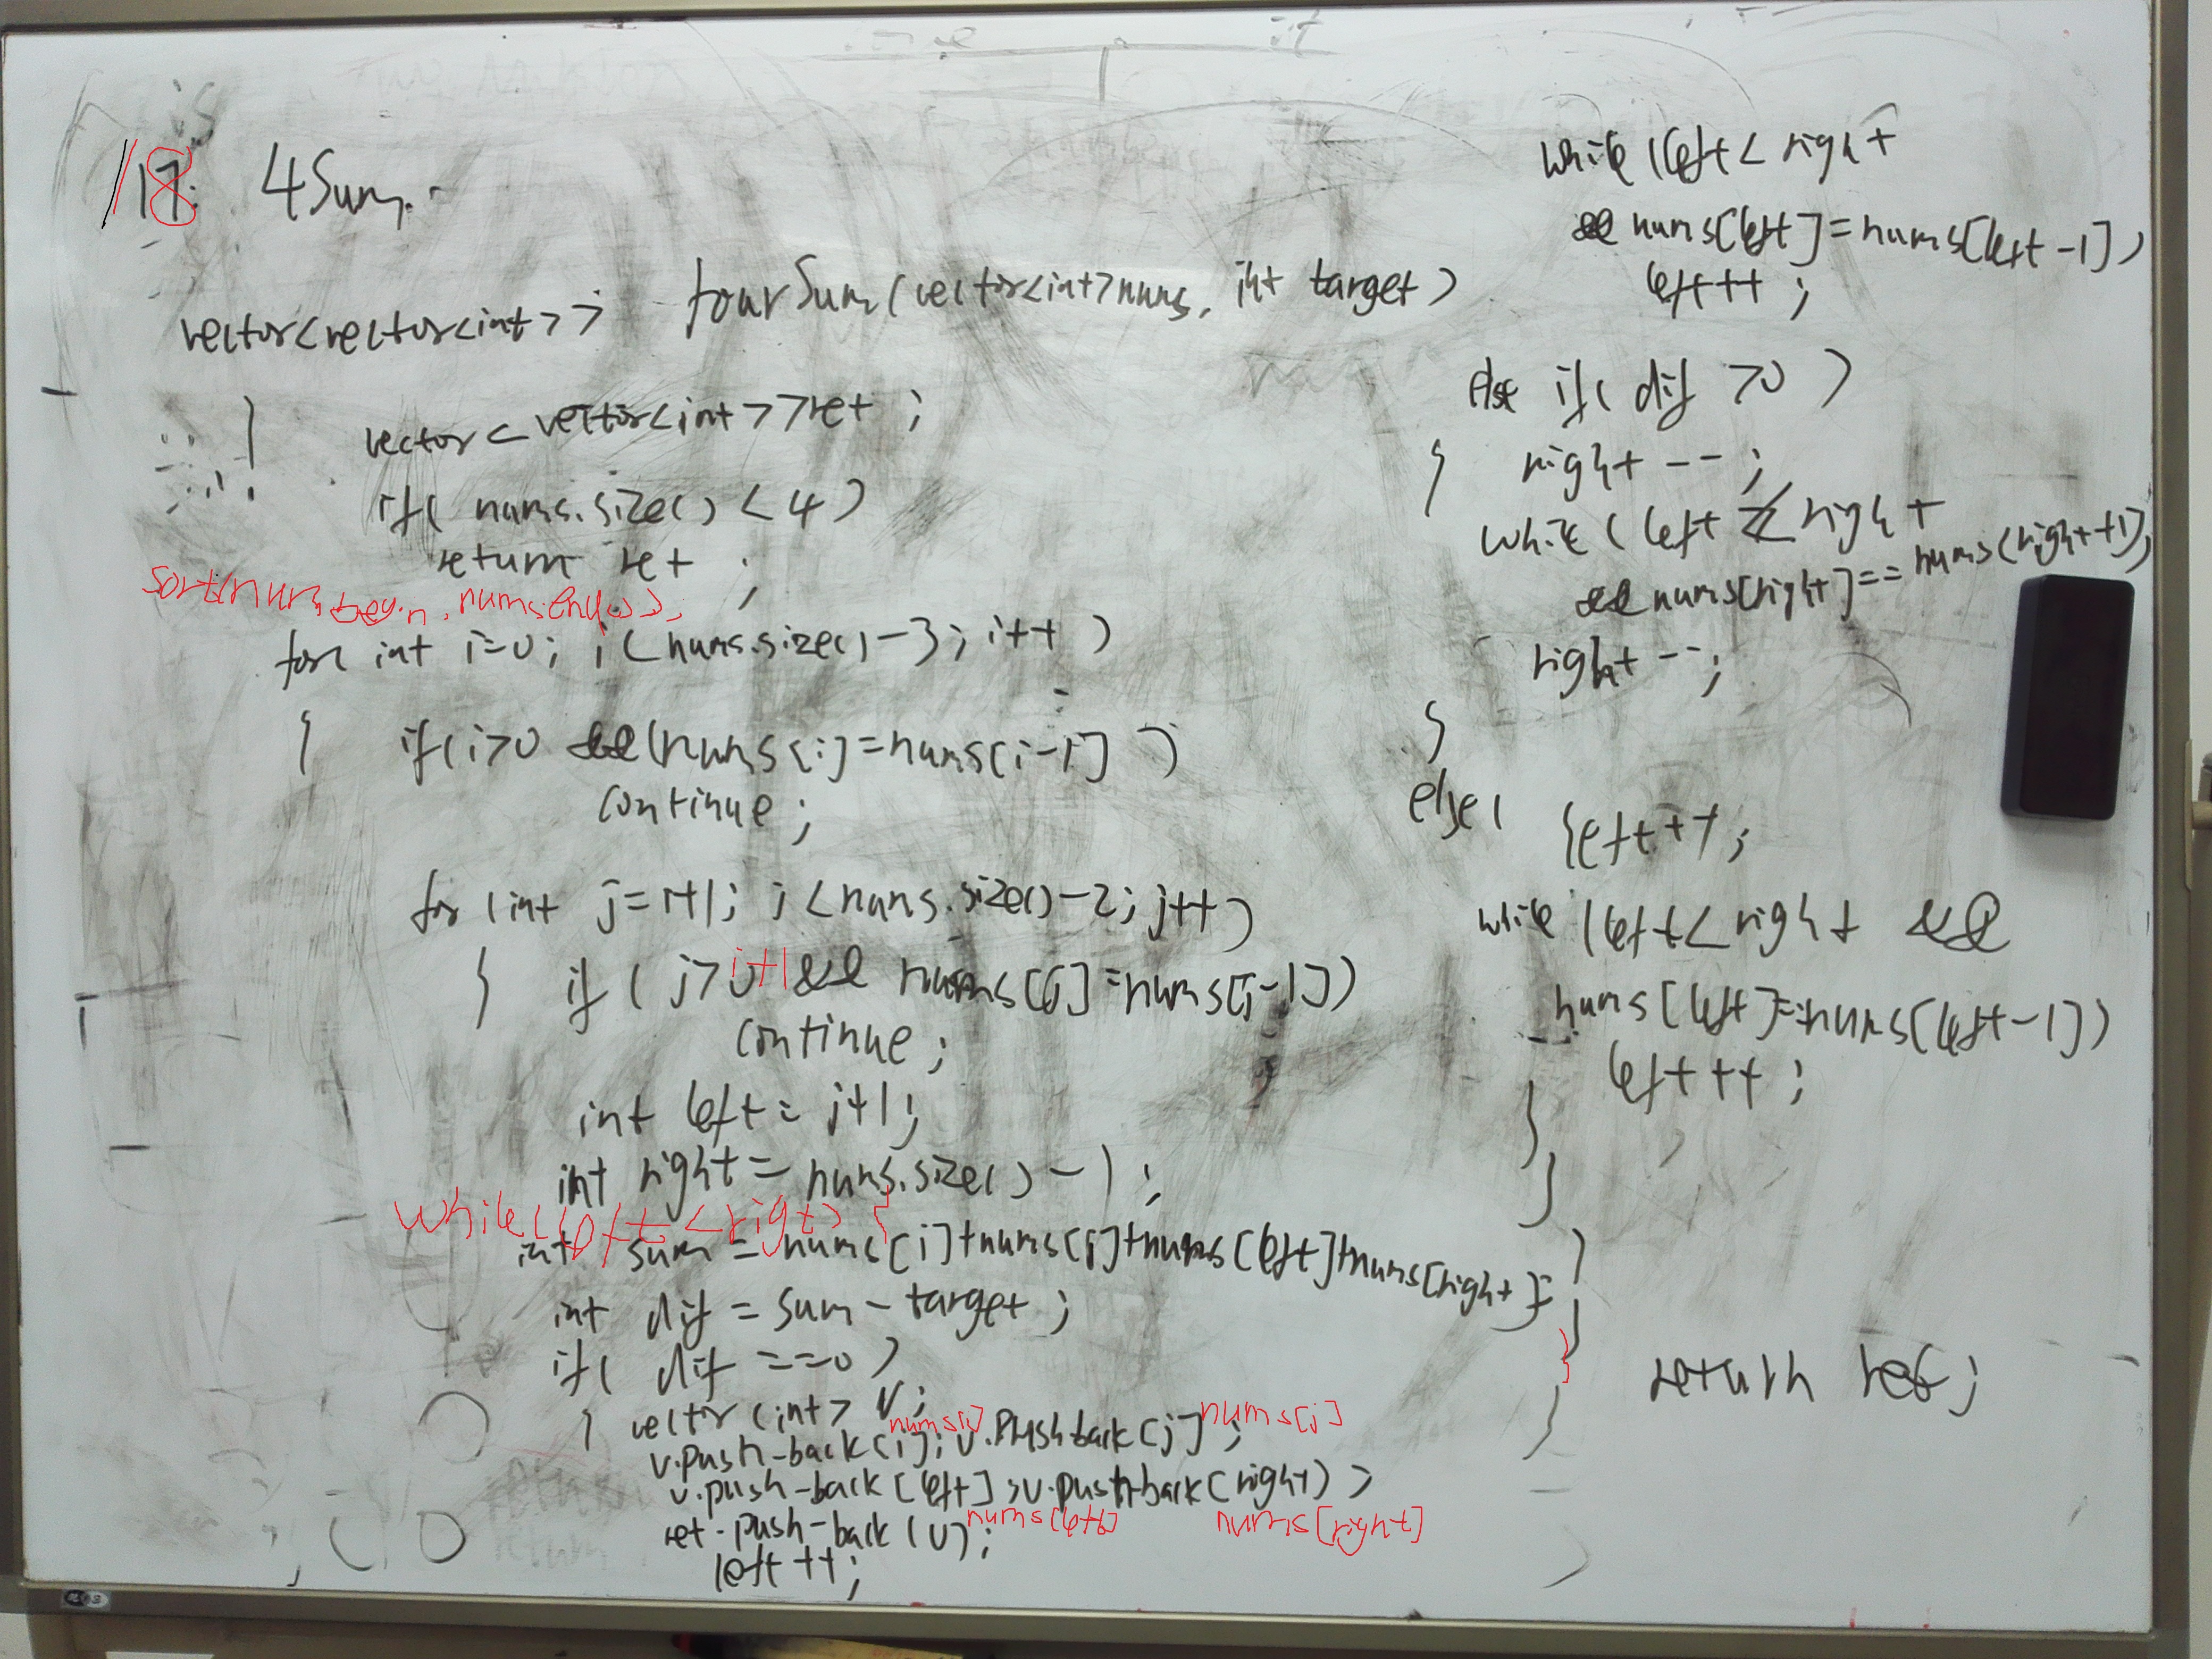 18. 4Sum.
vector<vector<int>> fourSum(vector<int>nums, int target)
{ vector<vector<int>>ret ;
if( nums.size() <4)
return ret ;
sort(nums.begin, nums.end()),
for( int i=0; i<nums.size()-3; i++ )
{ if(i>0 &&(nums[i]=nums[i-1] )
continue;
for (int j=i+1; j<nums.size()-2; j++)
{ if ( j>i+1 && nums[j]=nums[j-1])
continue;
int left = j+1;
int right = nums.size()-1;
while(left<right) {
int sum = nums[i]+nums[j]+nums[left]+nums[right];
int dif = sum - target;
if( dif ==0 )
{ vector<int> v;
nums[i] nums[j]
v.push-back[i]; v.push-back[j] ;
v.push-back[left];v.push-back(right) >
nums[left] nums[right]
ret.push-back(v);
left ++;
while left < right
&& nums[left]=nums[left-1])
left++;
else if( dif >0 )
{ right --;
while (left < right
&& nums[right]==nums(right+1],
right--;
}
else{ left++;
while (left<right &&
nums[left]==nums[left-1])
left++;
}
}
}
}
}
return ret;